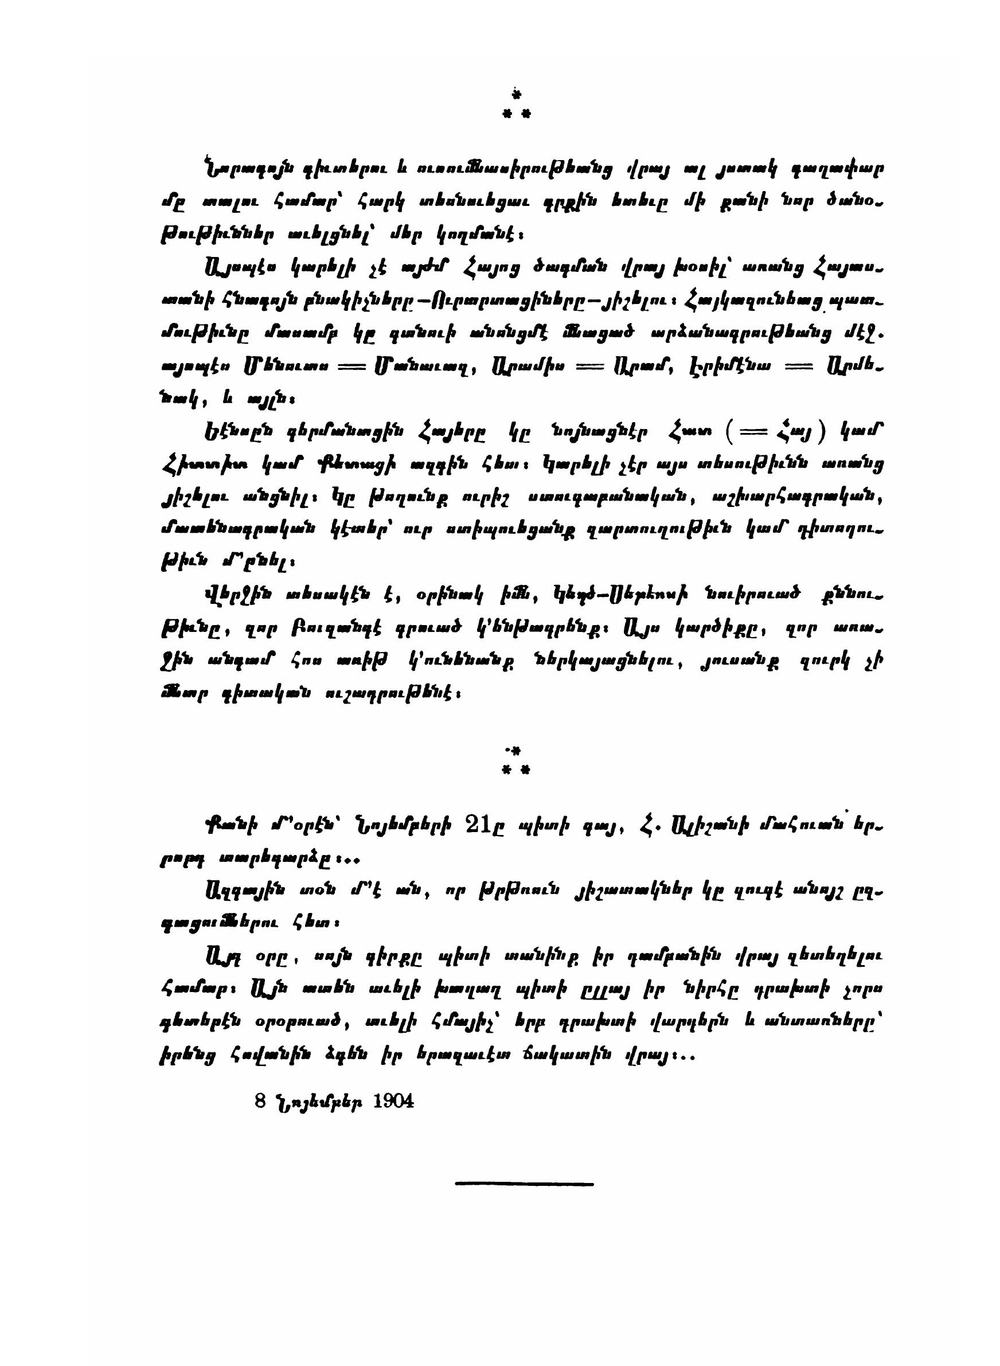 *
* *
Նորագոյն գիւտերու և ուսումնասիրութեանց վրայ ալ յստակ գաղափար
մը տալու համար՝ հարկ տեսնուեցաւ գրքին ետեւը մի քանի նոր ծանօ-
թութիւններ աւելցնել՝ մեր կողմանէ։
Այսպէս կարելի չէ այժմ Հայոց ծագման վրայ խօսիլ՝ առանց Հայաս-
տանի հնագոյն բնակիչները—Ուրարտացիները—յիշելու։ Հայկազունեաց պատ-
մութիւնը մասամբ կը գտնուի անոնցմէ մնացած արձանագրութեանց մէջ.
այսպէս Մենուաս = Մանաւազ, Արամիս = Արամ, Էրիմէնա = Արմե-
նակ, և այլն։
Եէնսըն գերմանացին Հայերը կը նոյնացնէր Հատ (= Հայ) կամ
Հիտտիտ կամ Քետացի ազգին հետ։ Կարելի չէր այս տեսութիւնն առանց
յիշելու անցնիլ։ Կը թողունք ուրիշ ստուգաբանական, աշխարհագրական,
մատենագրական կէտեր՝ ուր ստիպուեցանք զարտուղութիւն կամ դիտողու-
թիւն մ՚ընել։
Վերջին տեսակէն է, օրինակ իմն, Կեղծ-Սեբէոսի նուիրուած քննու-
թիւնը, զոր Բուզանդէ գրուած կ՚ենթադրենք։ Այս կարծիքը, զոր առա-
ջին անգամ հոս առիթ կ՚ունենանք ներկայացնելու, յուսանք զուրկ չի
մնար գիտական ուշադրութենէ։
*
* *
Քանի մ՚օրէն՝ Նոյեմբերի 21ը պիտի գայ, Հ. Ալիշանի մահուան եր-
րորդ տարեդարձը։..
Ազգային տօն մ՚է ան, որ թրթռուն յիշատակներ կը զուգէ անոյշ ըզ-
գացումներու հետ։
Այդ օրը, սոյն գիրքը պիտի տանինք իր դամբանին վրայ զետեղելու
համար։ Այն ատեն աւելի խաղաղ պիտի ըլլայ իր նիրհը դրախտի չորս
գետերէն օրօրուած, աւելի հմայիչ՝ երբ դրախտի վարդերն և անտառները՝
իրենց հովանին ձգեն իր երազաւէտ ճակատին վրայ։..
8 Նոյեմբեր 1904